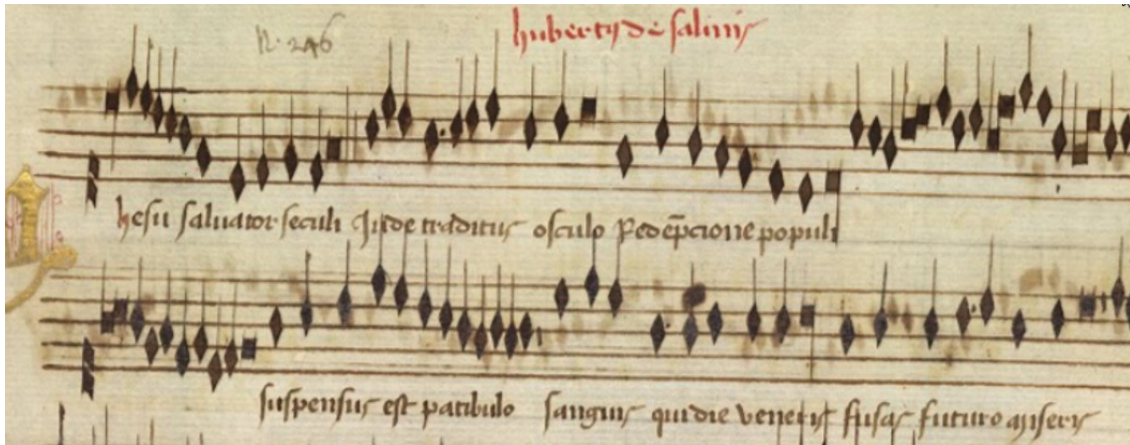 N. 246 hubertꝰ de salinis
Ihesu saluator seculi Iude traditus osculo Redēpcione populi
suspensus est patibulo sanguis qui die veneris fusus futuro miseris